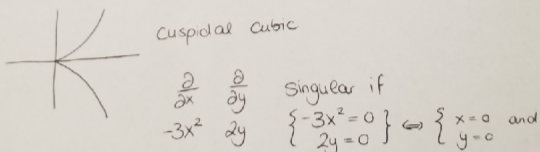 Cuspidal cubic
∂/∂x ∂/∂y Singular if
-3x² 2y { -3x² = 0 2y = 0 } ⇔ { x = 0 and y = 0